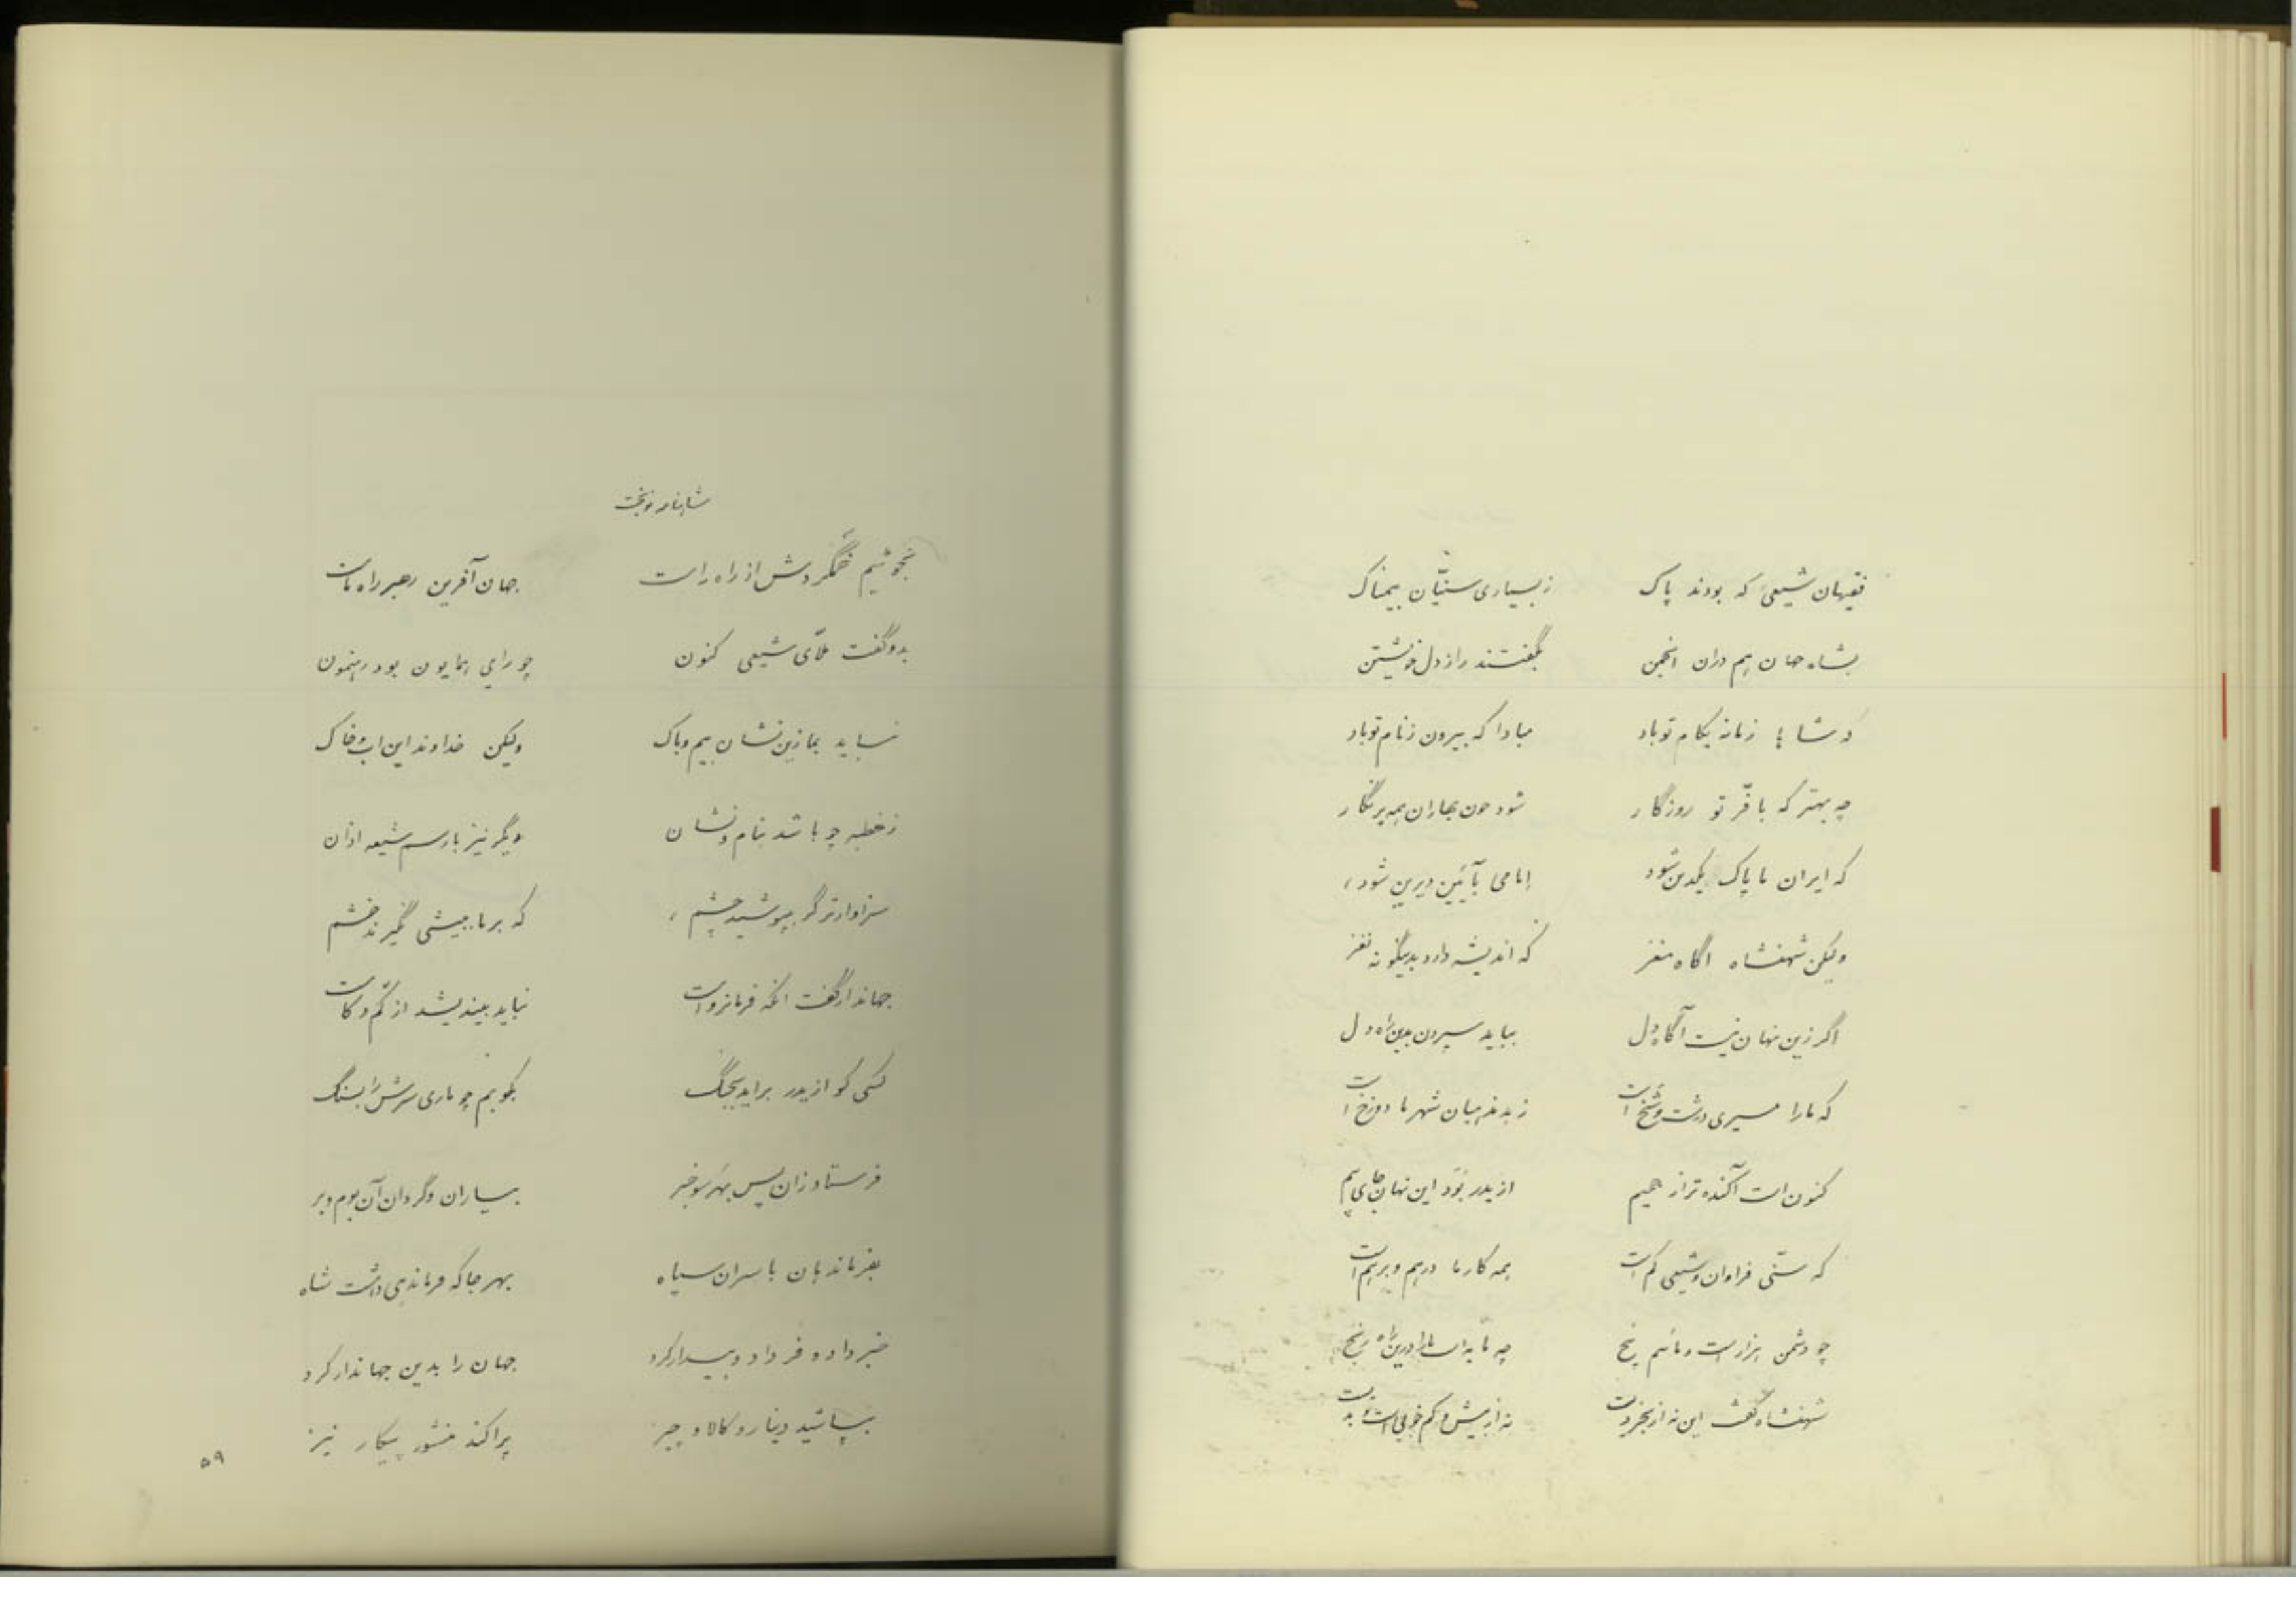 فقیهان شیعی که بودند پاک ز بسیاری سنیّان بیمناک
بشاه جهان هم دران انجمن بگفتند راز دل خویشتن
که شاها ! زمانه بکام تو باد مبادا که بیرون ز نام تو باد
چه بهتر که با فرّ تو روزگار شود چون بهاران همه پرنگار
که ایران ما پاک یکدین شود امامی بآئین دیرین شود ،
ولیکن شهنشاه اگاه مغز که اندیشه دارد بدینگونه نغز
اگر زین نهان نیست آگاه دل بباید سپردن بدین راه دل
که ما را مسیری درشت و شخ است
کنون است آکنده تر از همیم از یدر بود این نهان جای بیم
که سنّی فراوان و شیعی کم است همه کار ما درهم و برهم است
چو دشمن هزار است و مائیم پنج چه مایه است ما را درین راه رنج
شهنشاه گفت این نه از بخردیست نه از بیش و کم خوبی است و بدیست
شاهنامه نوبخت
نجوئیم گردش از راه راست جهان آفرین رهبر راه ماست
بدو گفت ملّای شیعی کنون چو رای همایون بود رهنمون
نساید بما زین نشان بیم و باک ولیکن خداوند این اب و خاک
ز خطبه چو باشد بنام و نشان دیگر نیز بارسم شیعه اذان
سزاوارتر گر بپوشید چشم ، که بر ما بیشی نگیرند خشم
جهاندار گفت انکه فرمانرواست نباید بیندیشد از کم و کاست
کسی کو از یدر براید بجنگ بکوبم چو ماری سرش را بسنگ
فرستاد زان پس بهر سو خبر بیاران و گردان آن بوم و بر
بفرماندهان با سران سپاه بهر جا که فرماندهی داشت شاه
خبر داد و فر داد و بیدار کرد جهان را بدین جهاندار کرد
بپاشید دینار و کالا و چیز پراکند منشور پیکار نیز
۵۹